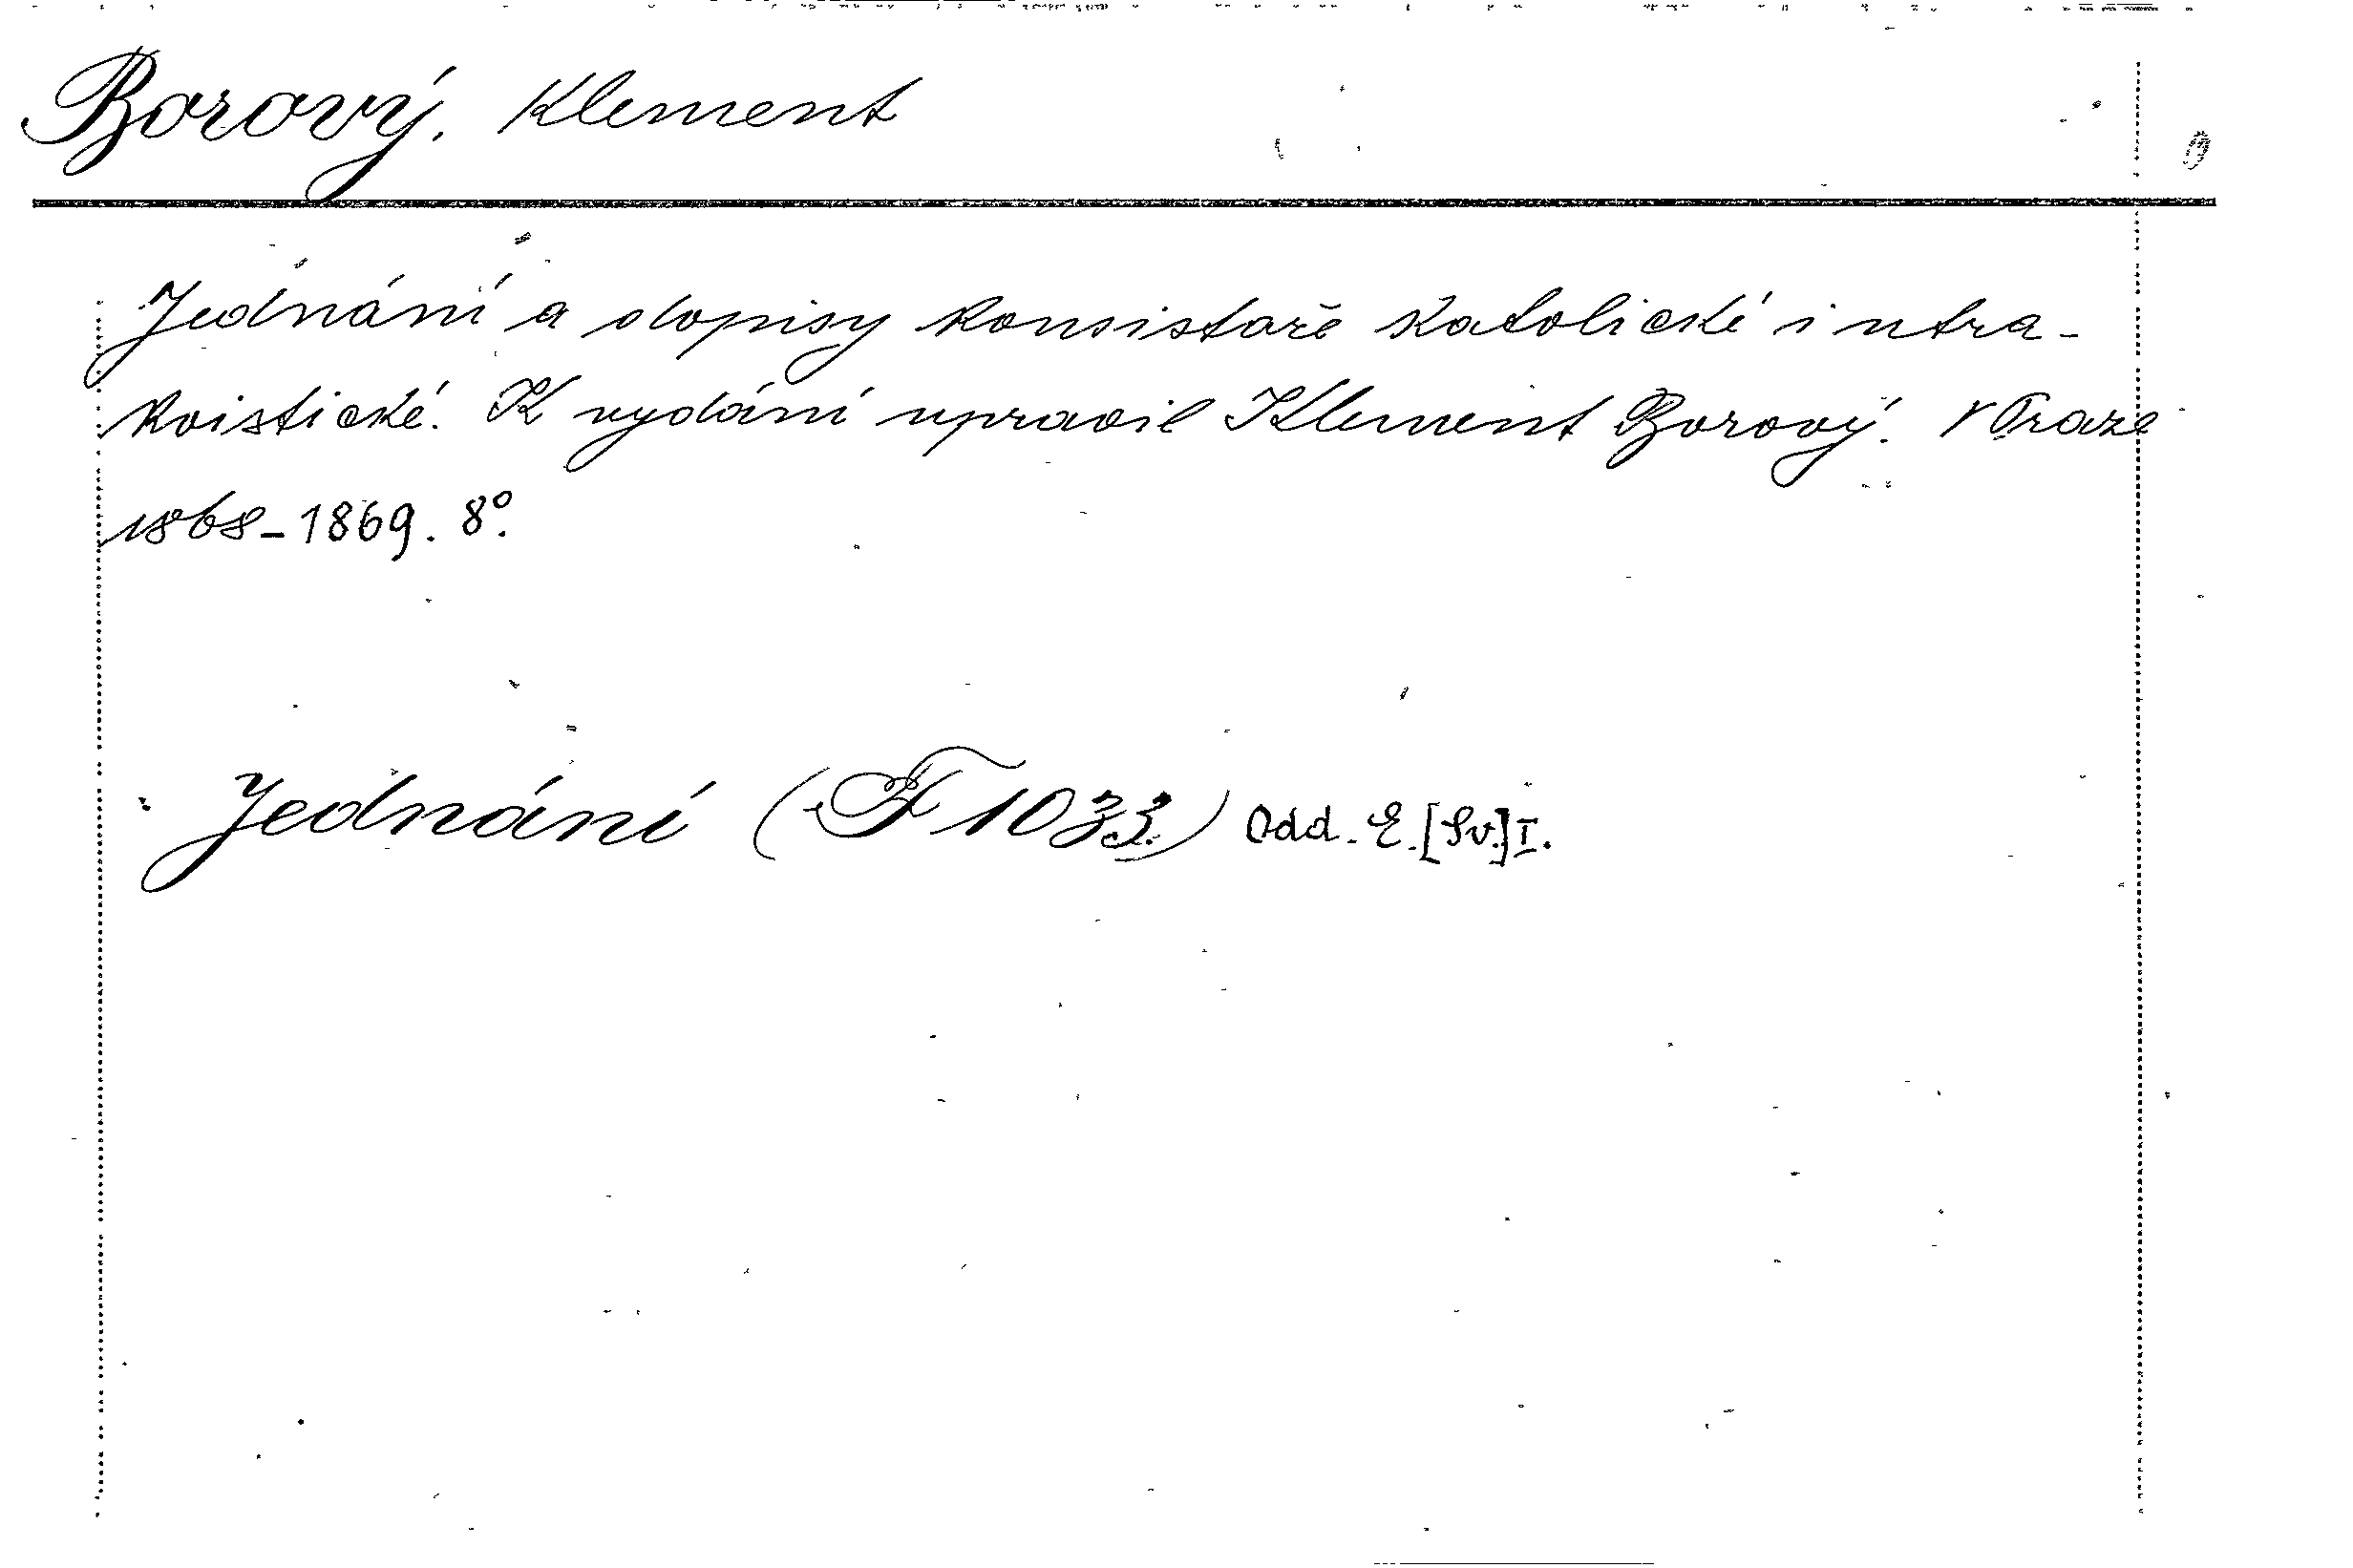 Borový. Klement
Jednání a dopisy konsistoře katolické i utra-
kvistické. K vydání upravil Klement Borový. V Praze
1868-1869. 8°.
Jednání (F 1033.) Odd. E. [Sv.] I.